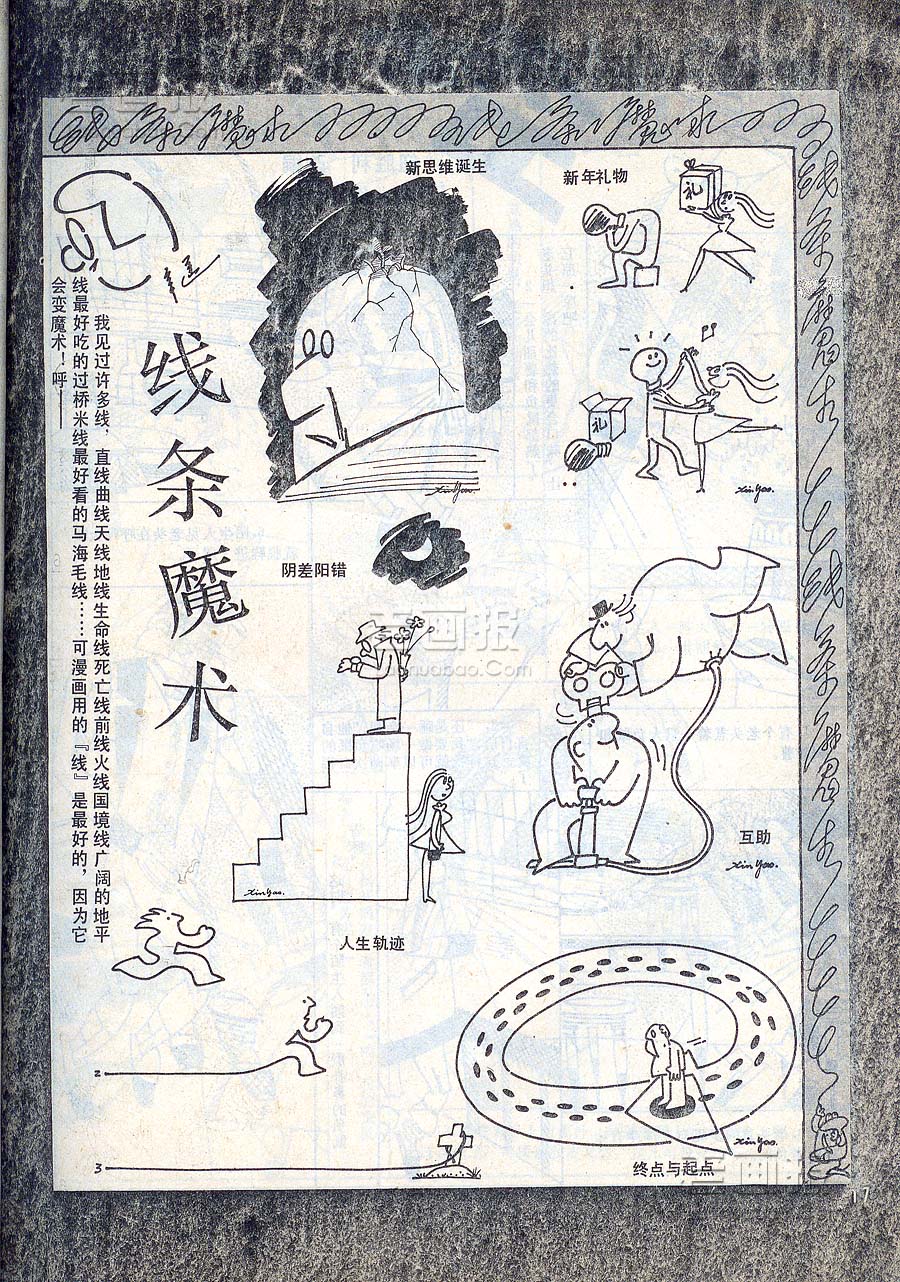 线条魔术
线条魔术
新思维诞生
新年礼物
礼
礼
我见过许多线，直线曲线天线地线生命线死亡线前线火线国境线广阔的地平
线最好吃的过桥米线最好看的马海毛线……可漫画用的『线』是最好的，因为它
会变魔术！呼——
线条魔术
Xin Yao.
Xin Yao.
阴差阳错
漫画报
manhuabao.Com
互助
Xin Yao.
Xin Yao.
人生轨迹
2
3
Xin Yao.
终点与起点
漫画报
17